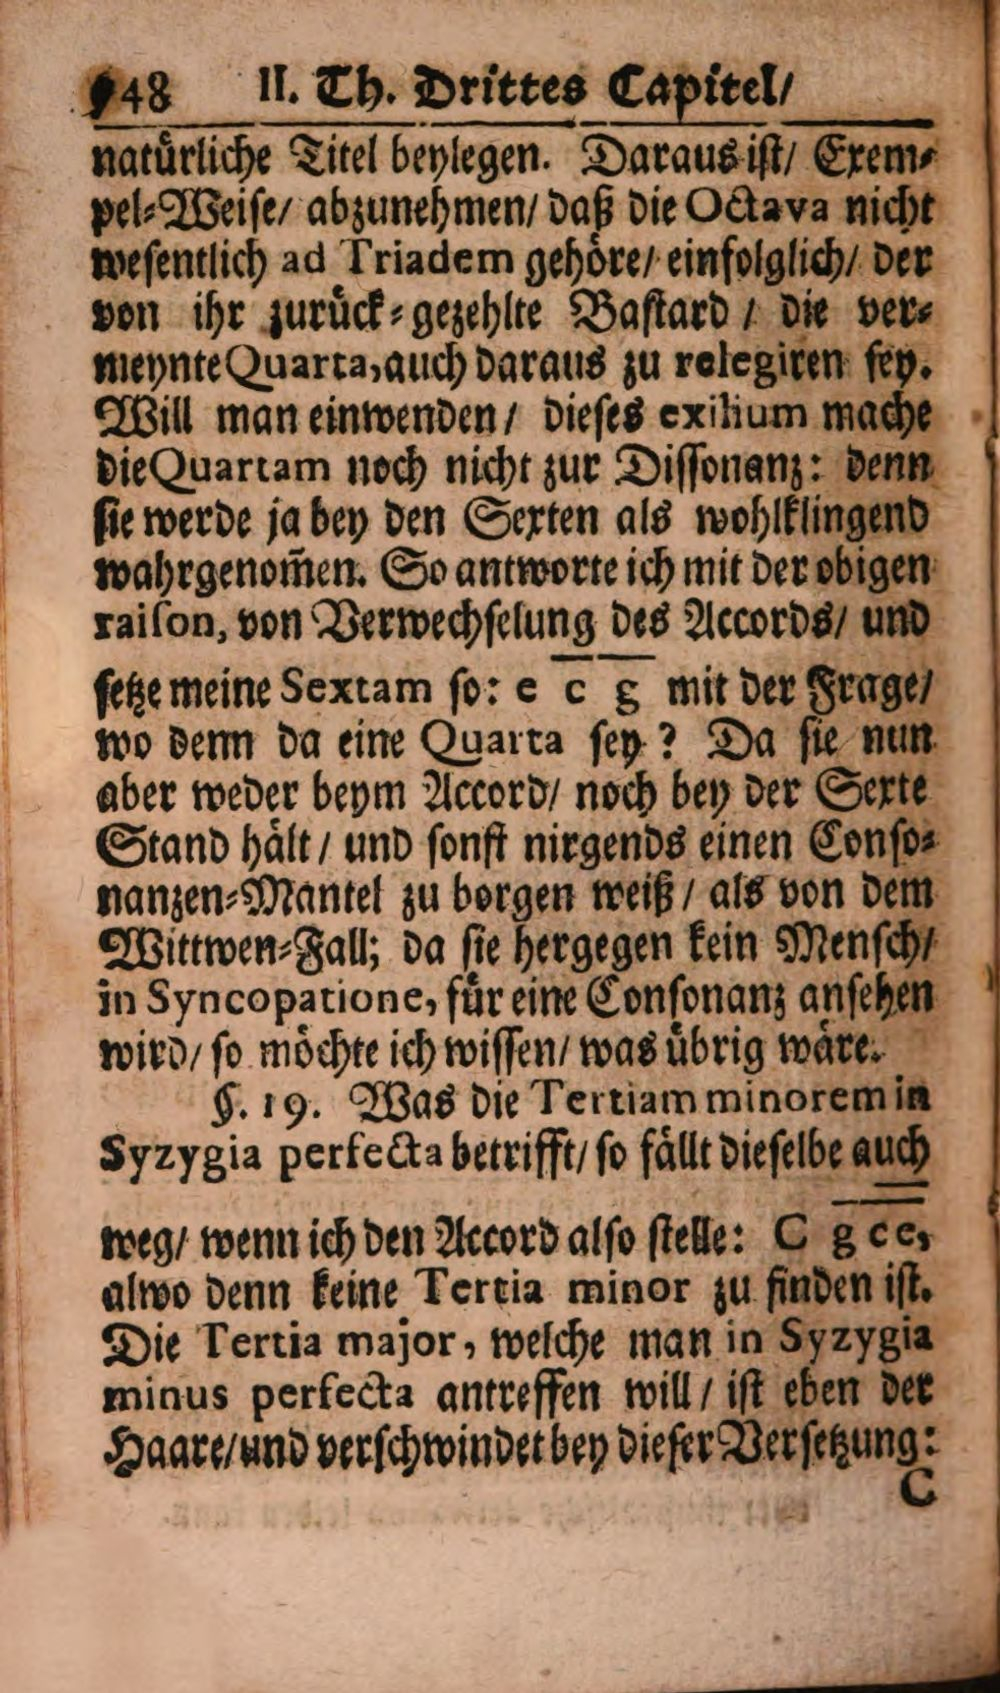 548 II. Th. Drittes Capitel/
natürliche Titel beylegen. Daraus ist/ Exem-
pel-Weise/ abzunehmen/ daß die Octava nicht
wesentlich ad Triadem gehöre/ einfolglich/ der
von ihr zurück-gezehlte Bastard / die ver-
meynte Quarta, auch daraus zu relegiren sey.
Will man einwenden / dieses exilium mache
die Quartam noch nicht zur Dissonanz: denn
sie werde ja bey den Sexten als wohlklingend
wahrgenom̃en. So antworte ich mit der obigen
raison, von Verwechselung des Accords/ und
setze meine Sextam so: e c̅ g̅ mit der Frage/
wo denn da eine Quarta sey? Da sie nun
aber weder beym Accord/ noch bey der Sexte
Stand hält / und sonst nirgends einen Conso-
nanzen-Mantel zu borgen weiß / als von dem
Wittwen-Fall; da sie hergegen kein Mensch/
in Syncopatione, für eine Consonanz ansehen
wird/ so möchte ich wissen/ was übrig wäre.
§. 19. Was die Tertiam minorem in
Syzygia perfecta betrifft/ so fällt dieselbe auch
weg/ wenn ich den Accord also stelle: C g c̅ e̿,
alwo denn keine Tertia minor zu finden ist.
Die Tertia major, welche man in Syzygia
minus perfecta antreffen will / ist eben der
Haare/ und verschwindet bey dieser Versetzung:
C